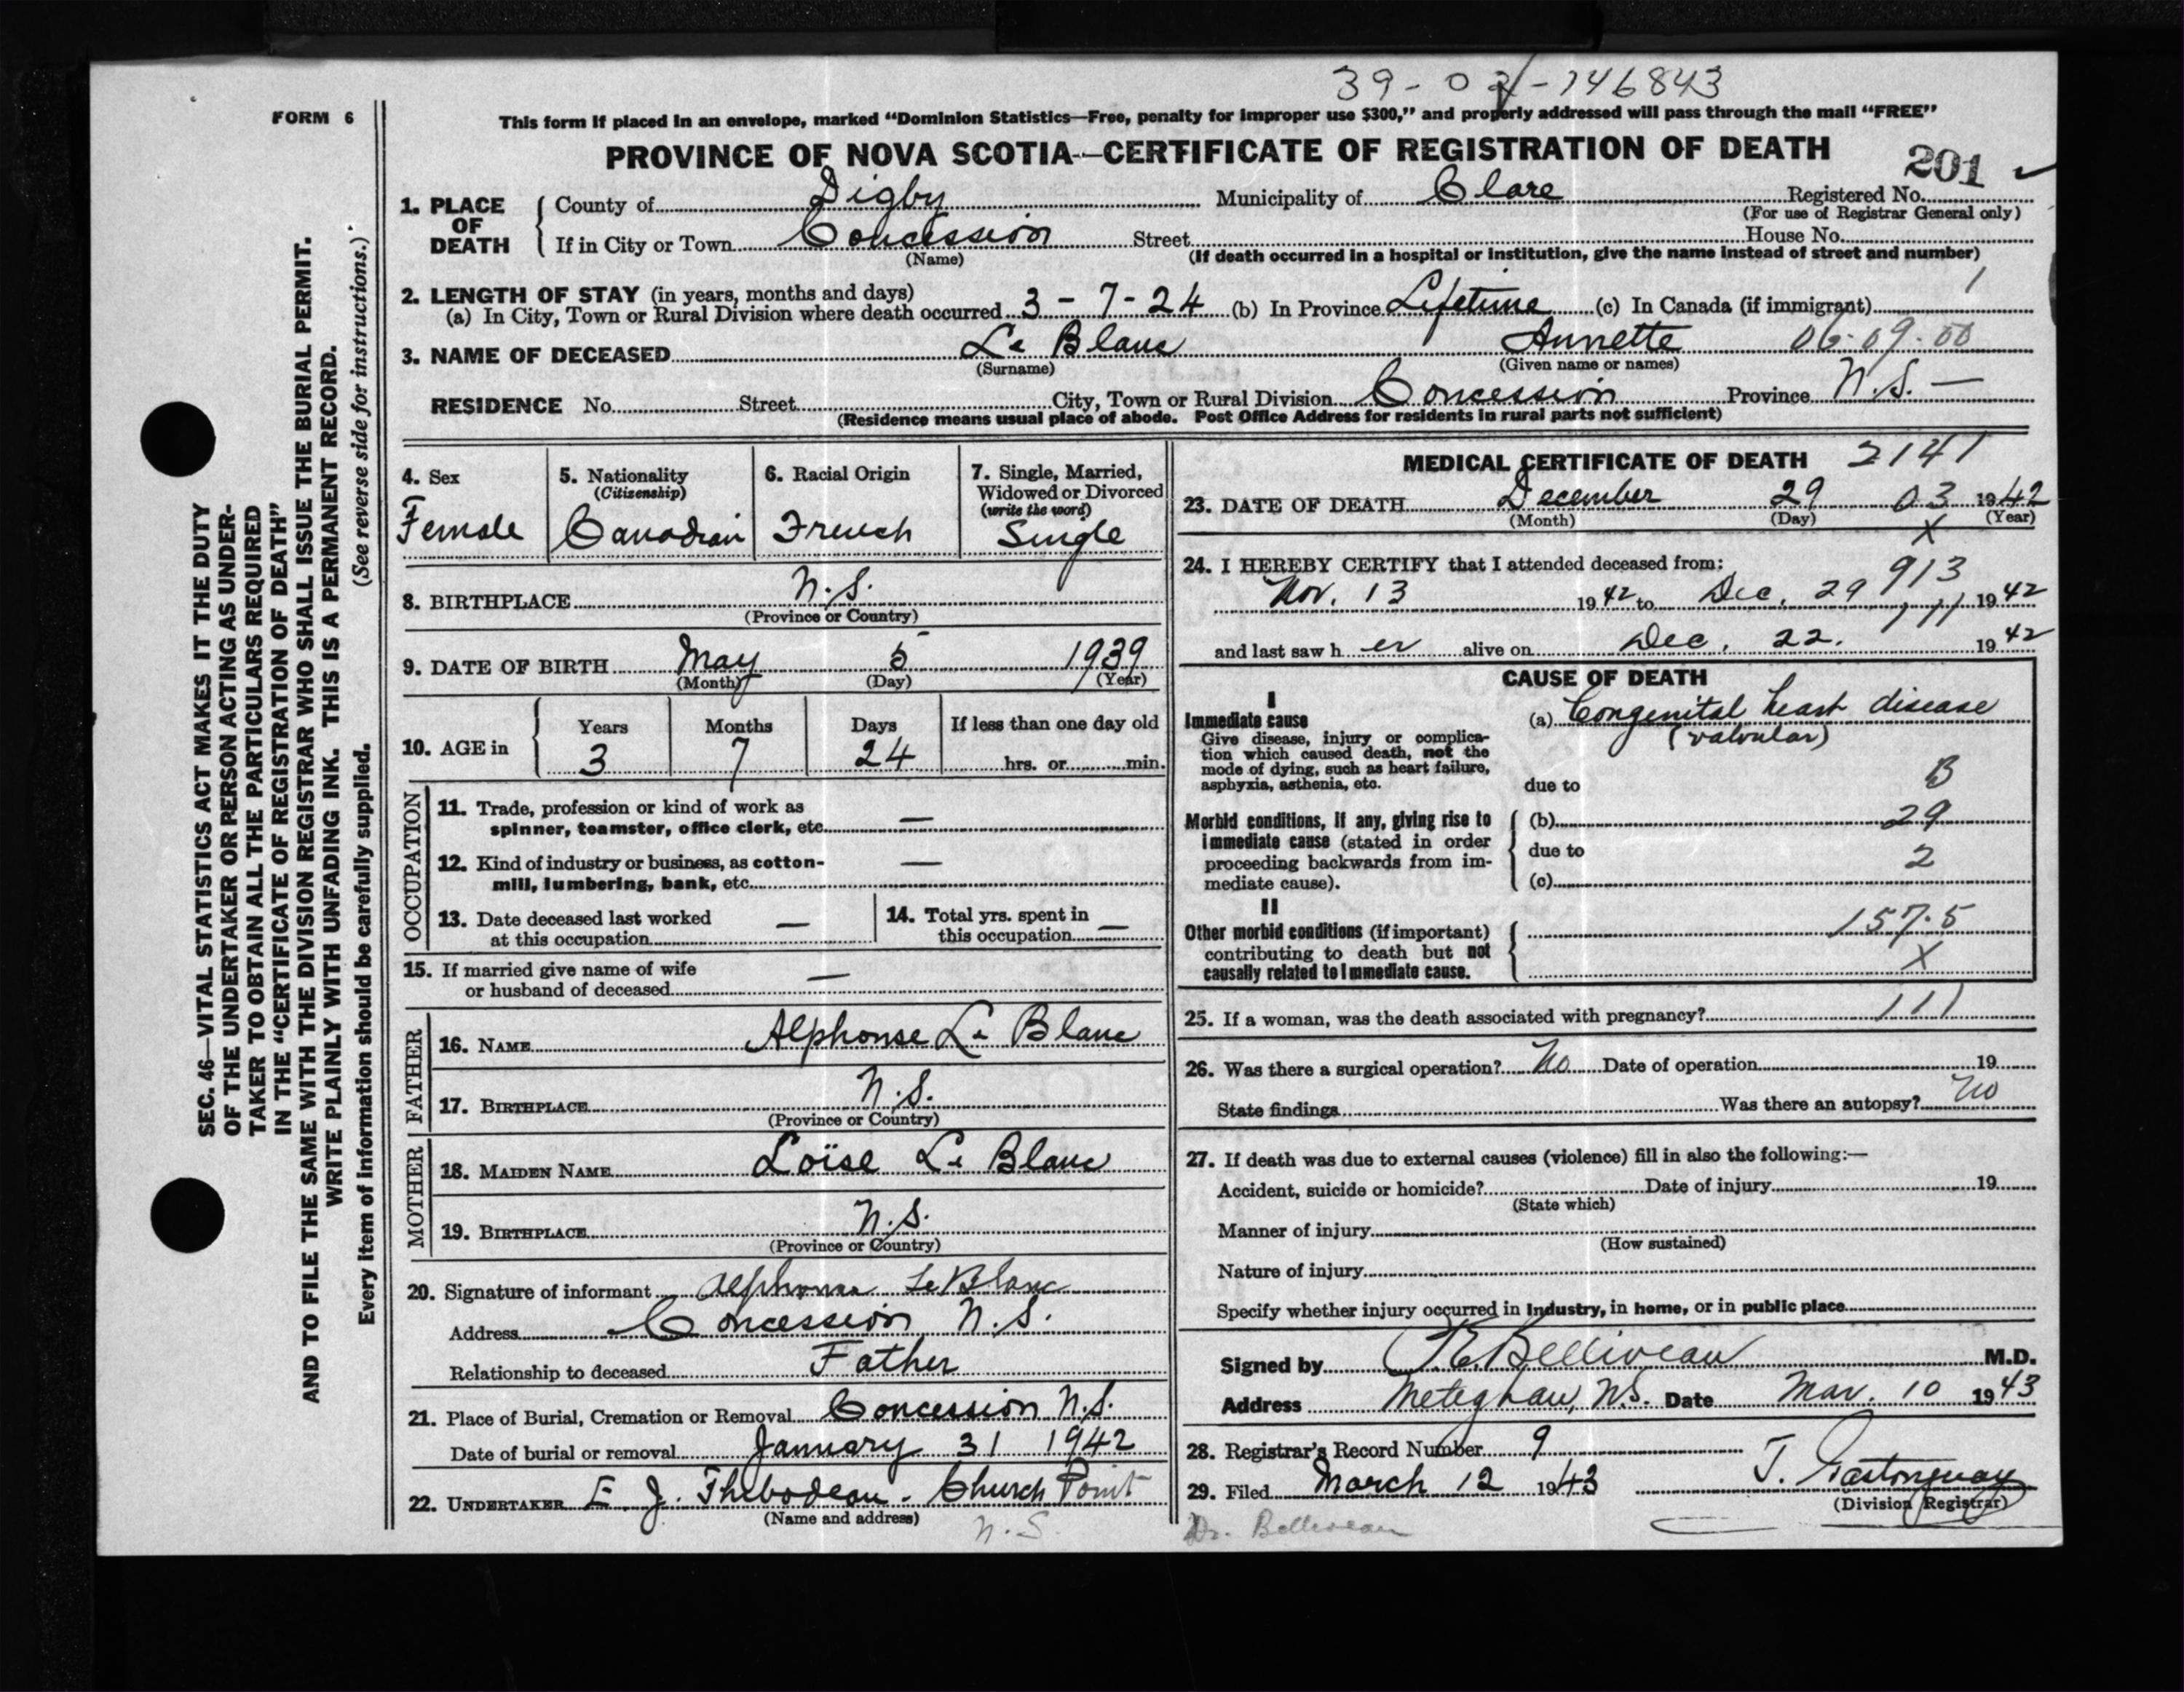 39-02-146843
FORM 6
This form if placed in an envelope, marked "Dominion Statistics—Free, penalty for improper use $300," and properly addressed will pass through the mail "FREE"
PROVINCE OF NOVA SCOTIA--CERTIFICATE OF REGISTRATION OF DEATH
201
1. PLACE OF DEATH
County of Digby Municipality of Clare Registered No.
(For use of Registrar General only)
If in City or Town Concession Street House No.
(Name) (If death occurred in a hospital or institution, give the name instead of street and number)
2. LENGTH OF STAY (in years, months and days) 1
(a) In City, Town or Rural Division where death occurred 3 - 7 - 24 (b) In Province Lifetime (c) In Canada (if immigrant)
3. NAME OF DECEASED Le Blanc Annette 06.09.00
(Surname) (Given name or names)
RESIDENCE No. Street City, Town or Rural Division Concession Province N.S. —
(Residence means usual place of abode. Post Office Address for residents in rural parts not sufficient)
4. Sex
Female
5. Nationality
(Citizenship)
Canadian
6. Racial Origin
French
7. Single, Married,
Widowed or Divorced
(write the word)
Single
8. BIRTHPLACE N.S.
(Province or Country)
9. DATE OF BIRTH May 5 1939
(Month) (Day) (Year)
10. AGE in
Years Months Days If less than one day old
3 7 24 hrs. or min.
OCCUPATION
11. Trade, profession or kind of work as
spinner, teamster, office clerk, etc. —
12. Kind of industry or business, as cotton-
mill, lumbering, bank, etc. —
13. Date deceased last worked
at this occupation —
14. Total yrs. spent in
this occupation —
15. If married give name of wife
or husband of deceased —
FATHER
16. NAME Alphonse Le Blanc
17. BIRTHPLACE N.S.
(Province or Country)
MOTHER
18. MAIDEN NAME Loïse Le Blanc
19. BIRTHPLACE N.S.
(Province or Country)
20. Signature of informant Alphonse LeBlanc
Address Concession N.S.
Relationship to deceased Father
21. Place of Burial, Cremation or Removal Concession N.S.
Date of burial or removal January 31 1942
22. UNDERTAKER E. J. Thibodeau. Church Point
(Name and address) N.S.
MEDICAL CERTIFICATE OF DEATH 2141
23. DATE OF DEATH December 29 03 1942
(Month) (Day) X (Year)
24. I HEREBY CERTIFY that I attended deceased from:
913
Nov. 13 1942 to Dec. 29 1942
111
and last saw her alive on Dec. 22. 1942
CAUSE OF DEATH
I
Immediate cause
Give disease, injury or complica-
tion which caused death, not the
mode of dying, such as heart failure,
asphyxia, asthenia, etc.
(a) Congenital heart disease
(valvular)
due to B
Morbid conditions, if any, giving rise to
immediate cause (stated in order
proceeding backwards from im-
mediate cause).
(b) 29
due to 2
(c)
II
Other morbid conditions (if important)
contributing to death but not
causally related to immediate cause.
157.5
X
25. If a woman, was the death associated with pregnancy? 111
26. Was there a surgical operation? No Date of operation 19
State findings Was there an autopsy? No
27. If death was due to external causes (violence) fill in also the following:—
Accident, suicide or homicide? Date of injury 19
(State which)
Manner of injury
(How sustained)
Nature of injury
Specify whether injury occurred in Industry, in home, or in public place
Signed by Belliveau M.D.
Address Meteghan, N.S. Date Mar. 10 1943
28. Registrar's Record Number 9
29. Filed March 12 1943 J. Gastonguay
(Division Registrar)
Dr. Belliveau
SEC. 46—VITAL STATISTICS ACT MAKES IT THE DUTY
OF THE UNDERTAKER OR PERSON ACTING AS UNDER-
TAKER TO OBTAIN ALL THE PARTICULARS REQUIRED
IN THE "CERTIFICATE OF REGISTRATION OF DEATH"
AND TO FILE THE SAME WITH THE DIVISION REGISTRAR WHO SHALL ISSUE THE BURIAL PERMIT.
WRITE PLAINLY WITH UNFADING INK. THIS IS A PERMANENT RECORD.
Every item of information should be carefully supplied. (See reverse side for instructions.)